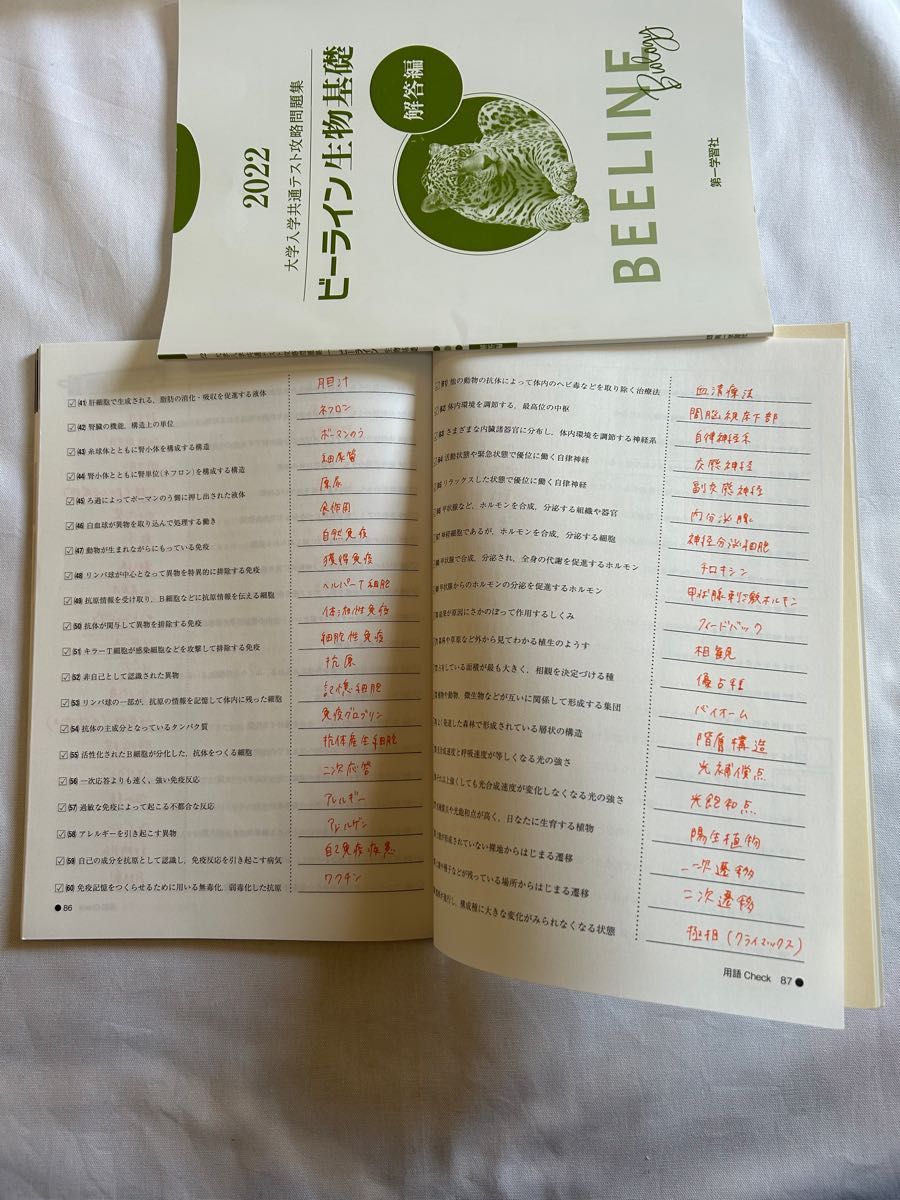 2022
大学入学共通テスト攻略問題集
ビーライン生物基礎
解答編
BEELINE
Biology
第一学習社
(41) 肝細胞で生成される，脂肪の消化・吸収を促進する液体 胆汁
(42) 腎臓の機能，構造上の単位 ネフロン
(43) 糸球体とともに腎小体を構成する構造 ボーマンのう
(44) 腎小体とともに腎単位(ネフロン)を構成する構造 細尿管
(45) ろ過によってボーマンのう側に押し出された液体 原尿
(46) 白血球が異物を取り込んで処理する働き 食作用
(47) 動物が生まれながらにもっている免疫 自然免疫
(48) リンパ球が中心となって異物を特異的に排除する免疫 獲得免疫
(49) 抗原情報を受け取り，B細胞などに抗原情報を伝える細胞 ヘルパーT細胞
(50) 抗体が関与して異物を排除する免疫 体液性免疫
(51) キラーT細胞が感染細胞などを攻撃して排除する免疫 細胞性免疫
(52) 非自己として認識された異物 抗原
(53) リンパ球の一部が，抗原の情報を記憶して体内に残った細胞 記憶細胞
(54) 抗体の主成分となっているタンパク質 免疫グロブリン
(55) 活性化されたB細胞が分化した，抗体をつくる細胞 抗体産生細胞
(56) 一次応答よりも速く，強い免疫反応 二次応答
(57) 過敏な免疫によって起こる不都合な反応 アレルギー
(58) アレルギーを引き起こす異物 アレルゲン
(59) 自己の成分を抗原として認識し，免疫反応を引き起こす病気 自己免疫疾患
(60) 免疫記憶をつくらせるために用いる無毒化，弱毒化した抗原 ワクチン
86
他の動物の抗体によって体内のヘビ毒などを取り除く治療法 血清療法
体内環境を調節する，最高位の中枢 間脳視床下部
さまざまな内臓諸器官に分布し，体内環境を調節する神経系 自律神経系
活動状態や緊急状態で優位に働く自律神経 交感神経
リラックスした状態で優位に働く自律神経 副交感神経
甲状腺など，ホルモンを合成，分泌する組織や器官 内分泌腺
神経細胞であるが，ホルモンを合成，分泌する細胞 神経分泌細胞
甲状腺で合成，分泌され，全身の代謝を促進するホルモン チロキシン
甲状腺からのホルモンの分泌を促進するホルモン 甲状腺刺激ホルモン
結果が原因にさかのぼって作用するしくみ フィードバック
森林や草原など外から見てわかる植生のようす 相観
している面積が最も大きく，相観を決定づける種 優占種
植物や動物，微生物などが互いに関係して形成する集団 バイオーム
よく発達した森林で形成されている層状の構造 階層構造
光合成速度と呼吸速度が等しくなる光の強さ 光補償点
それ以上強くしても光合成速度が変化しなくなる光の強さ 光飽和点
補償点や光飽和点が高く，日なたに生育する植物 陽生植物
が形成されていない裸地からはじまる遷移 一次遷移
や種子などが残っている場所からはじまる遷移 二次遷移
が進行し，構成種に大きな変化がみられなくなる状態 極相(クライマックス)
用語 Check 87